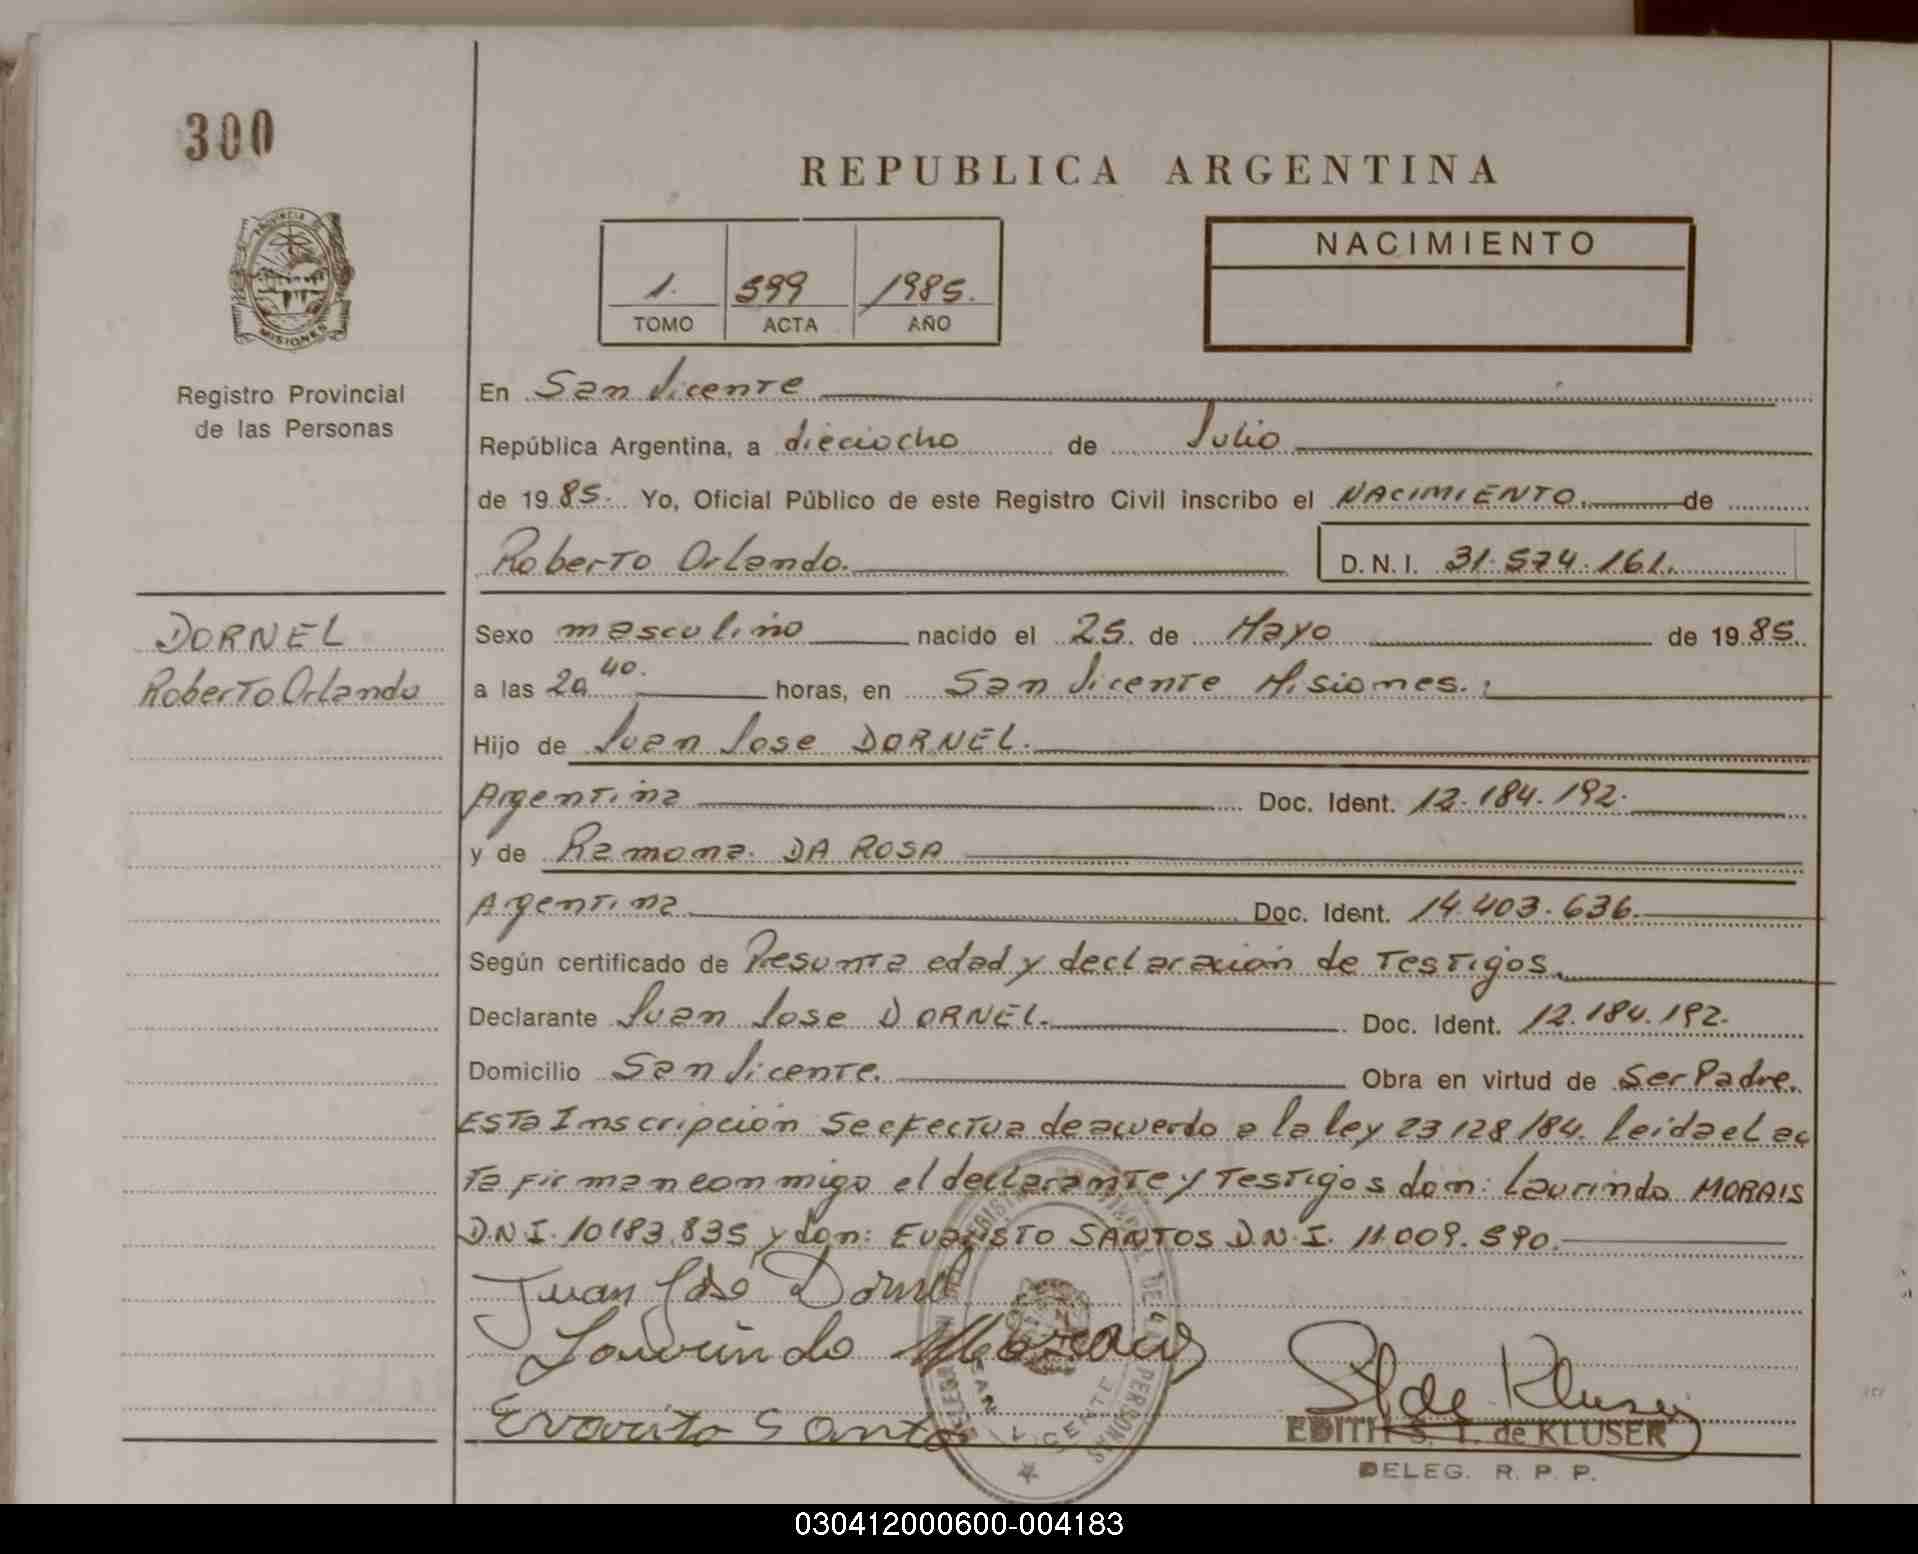 300
REPUBLICA ARGENTINA
PROVINCIA DE
MISIONES
1. 599 1985.
TOMO ACTA AÑO
NACIMIENTO
Registro Provincial
de las Personas
En San Vicente
República Argentina, a dieciocho de Julio
de 1985. Yo, Oficial Público de este Registro Civil inscribo el NACIMIENTO. de
Roberto Orlando. D.N.I. 31.574.161.
DORNEL
Roberto Orlando
Sexo masculino nacido el 25 de Mayo de 1985.
a las 20 40. horas, en San Vicente Misiones.
Hijo de Juan Jose DORNEL.
Argentina Doc. Ident. 12.184.192.
y de Ramona DA ROSA
Argentina Doc. Ident. 14.403.636.
Según certificado de Presunta edad y declaración de Testigos.
Declarante Juan Jose DORNEL. Doc. Ident. 12.184.192.
Domicilio San Vicente. Obra en virtud de Ser Padre.
Esta Inscripción se efectua de acuerdo a la ley 23128/84. leida el ac
ta firman conmigo el declarante y Testigos don: Laurindo MORAIS
D.N.I. 10183.835 y don: EVARISTO SANTOS D.N.I. 11.009.590.
Juan José Dornel
Lourindo Moraes
Evarito Santo
SAN VICENTE
EDITH S. T. de KLUSER
DELEG. R. P. P.
030412000600-004183